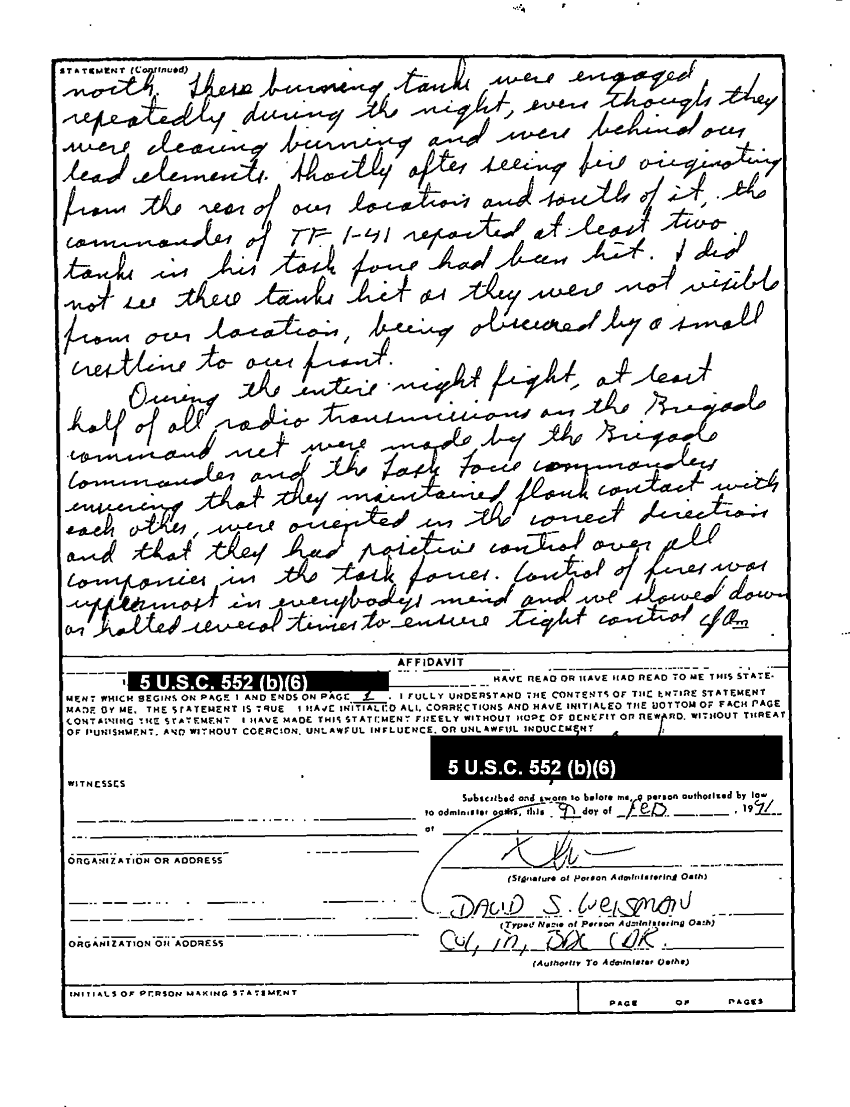 STATEMENT (Continued)
north. These burning tanks were engaged
repeatedly during the night, even though they
were clearing burning and were behind our
lead elements. Shortly after seeing fire originating
from the rear of our location and south of it, the
commander of TF 1-41 reported at least two
tanks in his task force had been hit. I did
not see these tanks hit as they were not visible
from our location, being obscured by a small
crestline to our front.
During the entire night fight, at least
half of all radio transmissions on the Brigade
command net were made by the Brigade
Commander and the Task Force commanders
ensuring that they maintained flank contact with
each other, were oriented in the correct direction
and that they had positive control over all
companies in the task forces. Control of fires was
uppermost in everybodys mind and we slowed down
or halted several times to ensure tight control
AFFIDAVIT
5 U.S.C. 552 (b)(6) HAVE READ OR HAVE HAD READ TO ME THIS STATE-
MENT WHICH BEGINS ON PAGE 1 AND ENDS ON PAGE 1. I FULLY UNDERSTAND THE CONTENTS OF THE ENTIRE STATEMENT
MADE BY ME. THE STATEMENT IS TRUE I HAVE INITIALED ALL CORRECTIONS AND HAVE INITIALED THE BOTTOM OF EACH PAGE
CONTAINING THE STATEMENT I HAVE MADE THIS STATEMENT FREELY WITHOUT HOPE OF BENEFIT OR REWARD, WITHOUT THREAT
OF PUNISHMENT, AND WITHOUT COERCION, UNLAWFUL INFLUENCE, OR UNLAWFUL INDUCEMENT
5 U.S.C. 552 (b)(6)
WITNESSES
Subscribed and sworn to before me, a person authorized by law
to administer oaths, this 9 day of FEB, 1991
at
ORGANIZATION OR ADDRESS
(Signature of Person Administering Oath)
DAVID S. WEISMAN
(Typed Name of Person Administering Oath)
ORGANIZATION OR ADDRESS
COL, IN, BDE CDR.
(Authority To Administer Oaths)
INITIALS OF PERSON MAKING STATEMENT
PAGE OF PAGES